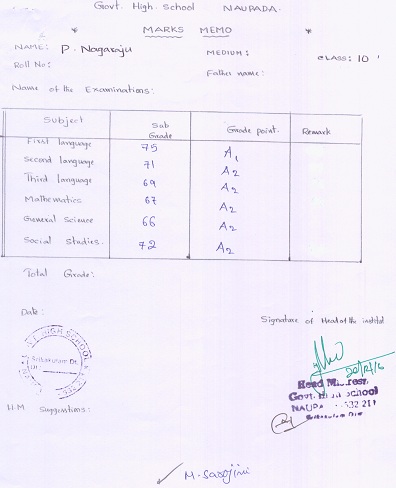 Govt. High. School NAUPADA.
* MARKS MEMO *
NAME: P. Nagaraju MEDIUM: CLASS: 10
Roll No: Father name:
Name of the Examinations:
Subject Sub Grade Grade point. Remark
First language 75 A1
Second language 71 A2
Third language 69 A2
Mathematics 67 A2
General Science 66 A2
Social studies. 72 A2
Total Grade:
Date: Signature of Head of the institut
HIGH SCHOOL
Srikakulam Dt.
20/12/16
Head
Govt. High School
532 211
Srikakulam Dist
H.M Suggestions:
M. Sarojini